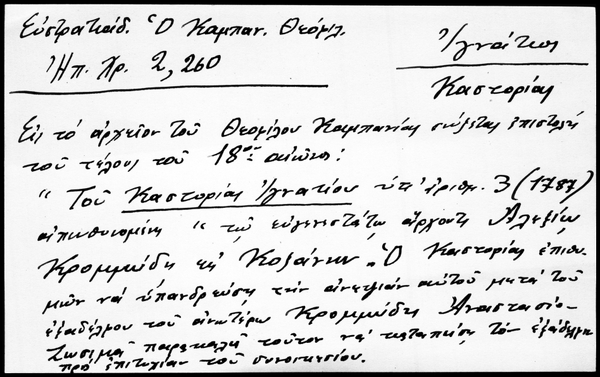 Εὐστρατιάδ. Ὁ Καμπαν. Θεόφιλ.
Ἠπ. Χρ. 2, 260
Ἰγνάτιος
Καστορίας
Εἰς τό ἀρχεῖον τοῦ Θεοφίλου Καμπανίας σώζεται ἐπιστολή
τοῦ τέλους τοῦ 18ου αἰῶνος:
" Τοῦ Καστορίας Ἰγνατίου ὑπ' ἀριθμ. 3 (1787)
ἀπευθυνομένη " τῷ εὐγενεστάτῳ ἄρχοντι Ἀλεξίῳ
Κρομμύδη εἰς Κοζάνην. Ὁ Καστορίας ἐπιθυ-
μῶν νά ὑπανδρεύσῃ τήν ἀνεψιάν αὐτοῦ μετά τοῦ
ἐξαδέλφου τοῦ ἀνωτέρω Κρομμύδη Ἀναστασίο-
Ζωσιμᾶ παρακαλεῖ τοῦτον νά καταπείσῃ τόν ἐξάδελφον
πρός ἐπιτυχίαν τοῦ συνοικεσίου.